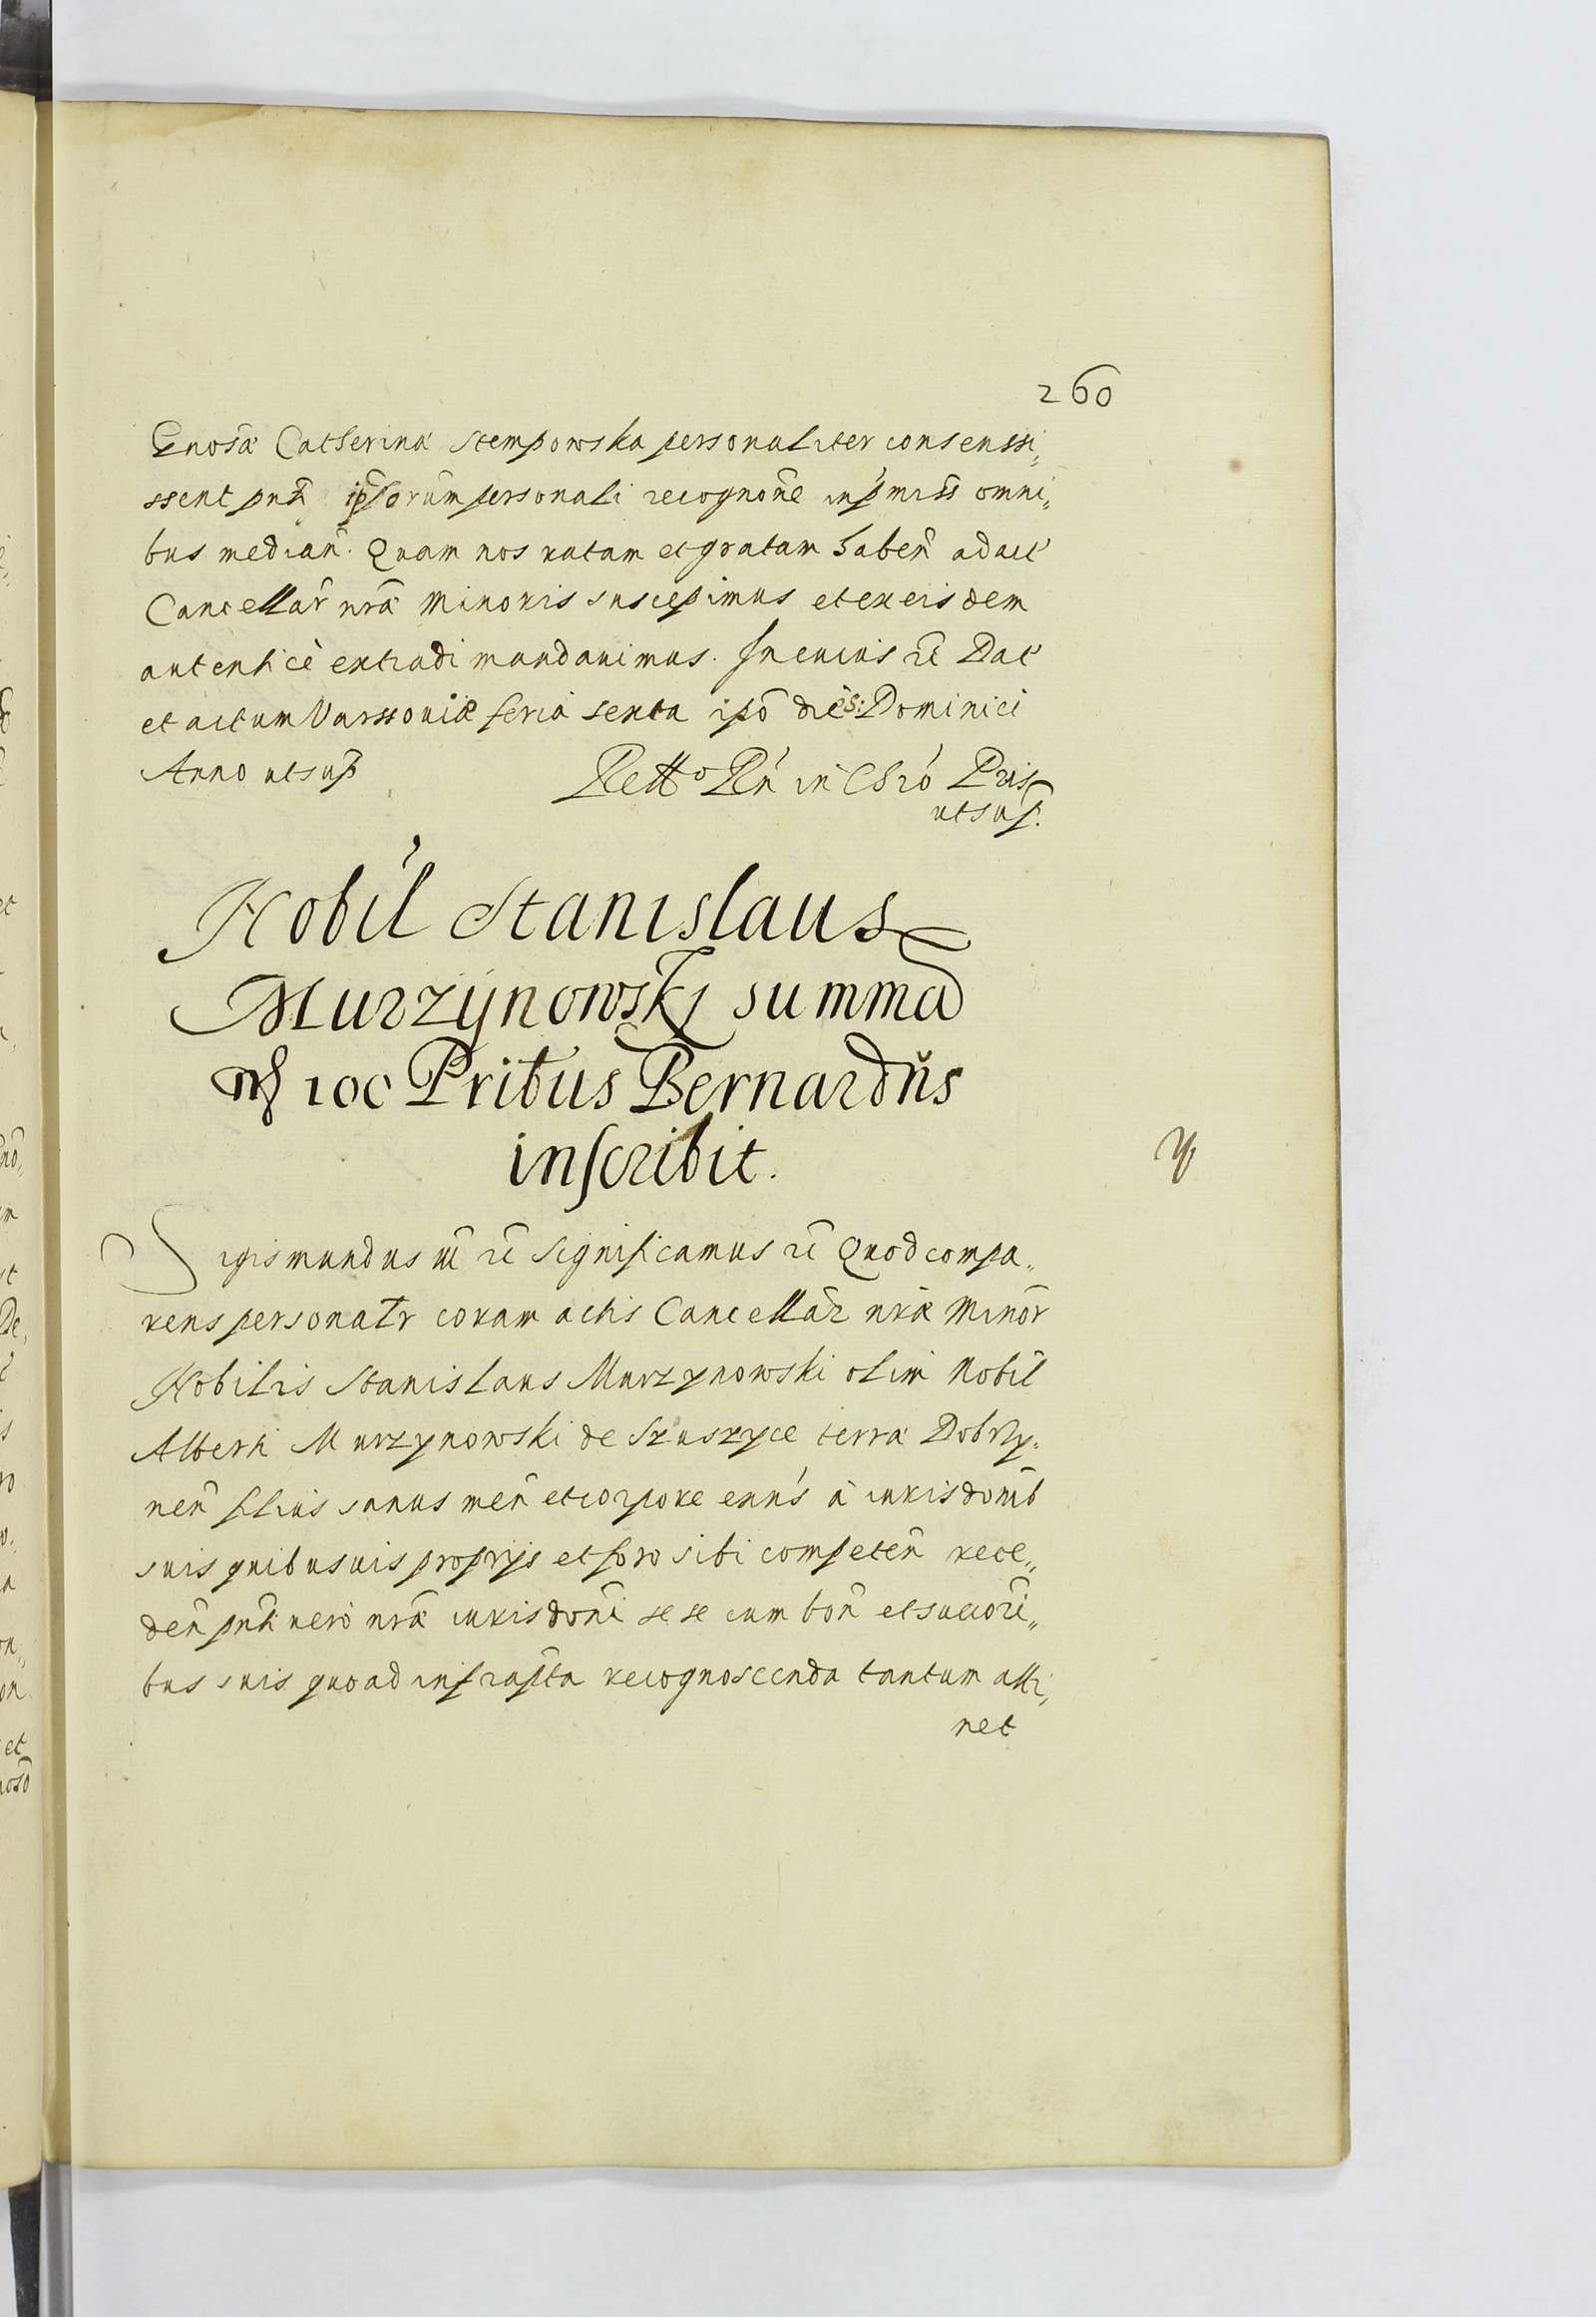 260
Gnosa Catherina Stempowska personaliter consenssi„
ssent pntj ipsorum personali recognone in pmiss omni„
bus median. Quam nos ratam et gratam haben ad act
Cancellar nrae Minoris suscepimus et ex eisdem
autentice extradi mandavimus. In cuius rei Dat
et actum Varssoviae feria sexta ipo die S: Dominici
Anno ut sup
Rctto Rn in Chro Pris
ut sup.
Nobil Stanislaus
Murzÿnowskj summã
100 Pribus Bernardňs
inscribit.
Sigismundus III rc Significamus rc Quod compa„
rens personaľr coram actis Cancellar nrae Minor
Nobilis Stanislaus Murzynowski olim Nobil
Alberti Murzynowski de Szuszyce terrae Dobrzy„
nen filius sanus men et corpore exns à iurisdonib
suis quibusuis proprijs et foro sibi competen rece„
den pnti vero nrae iurisdoni se se cum bon et succori„
bus suis quoad infrapta recognoscenda tantum atti„
net